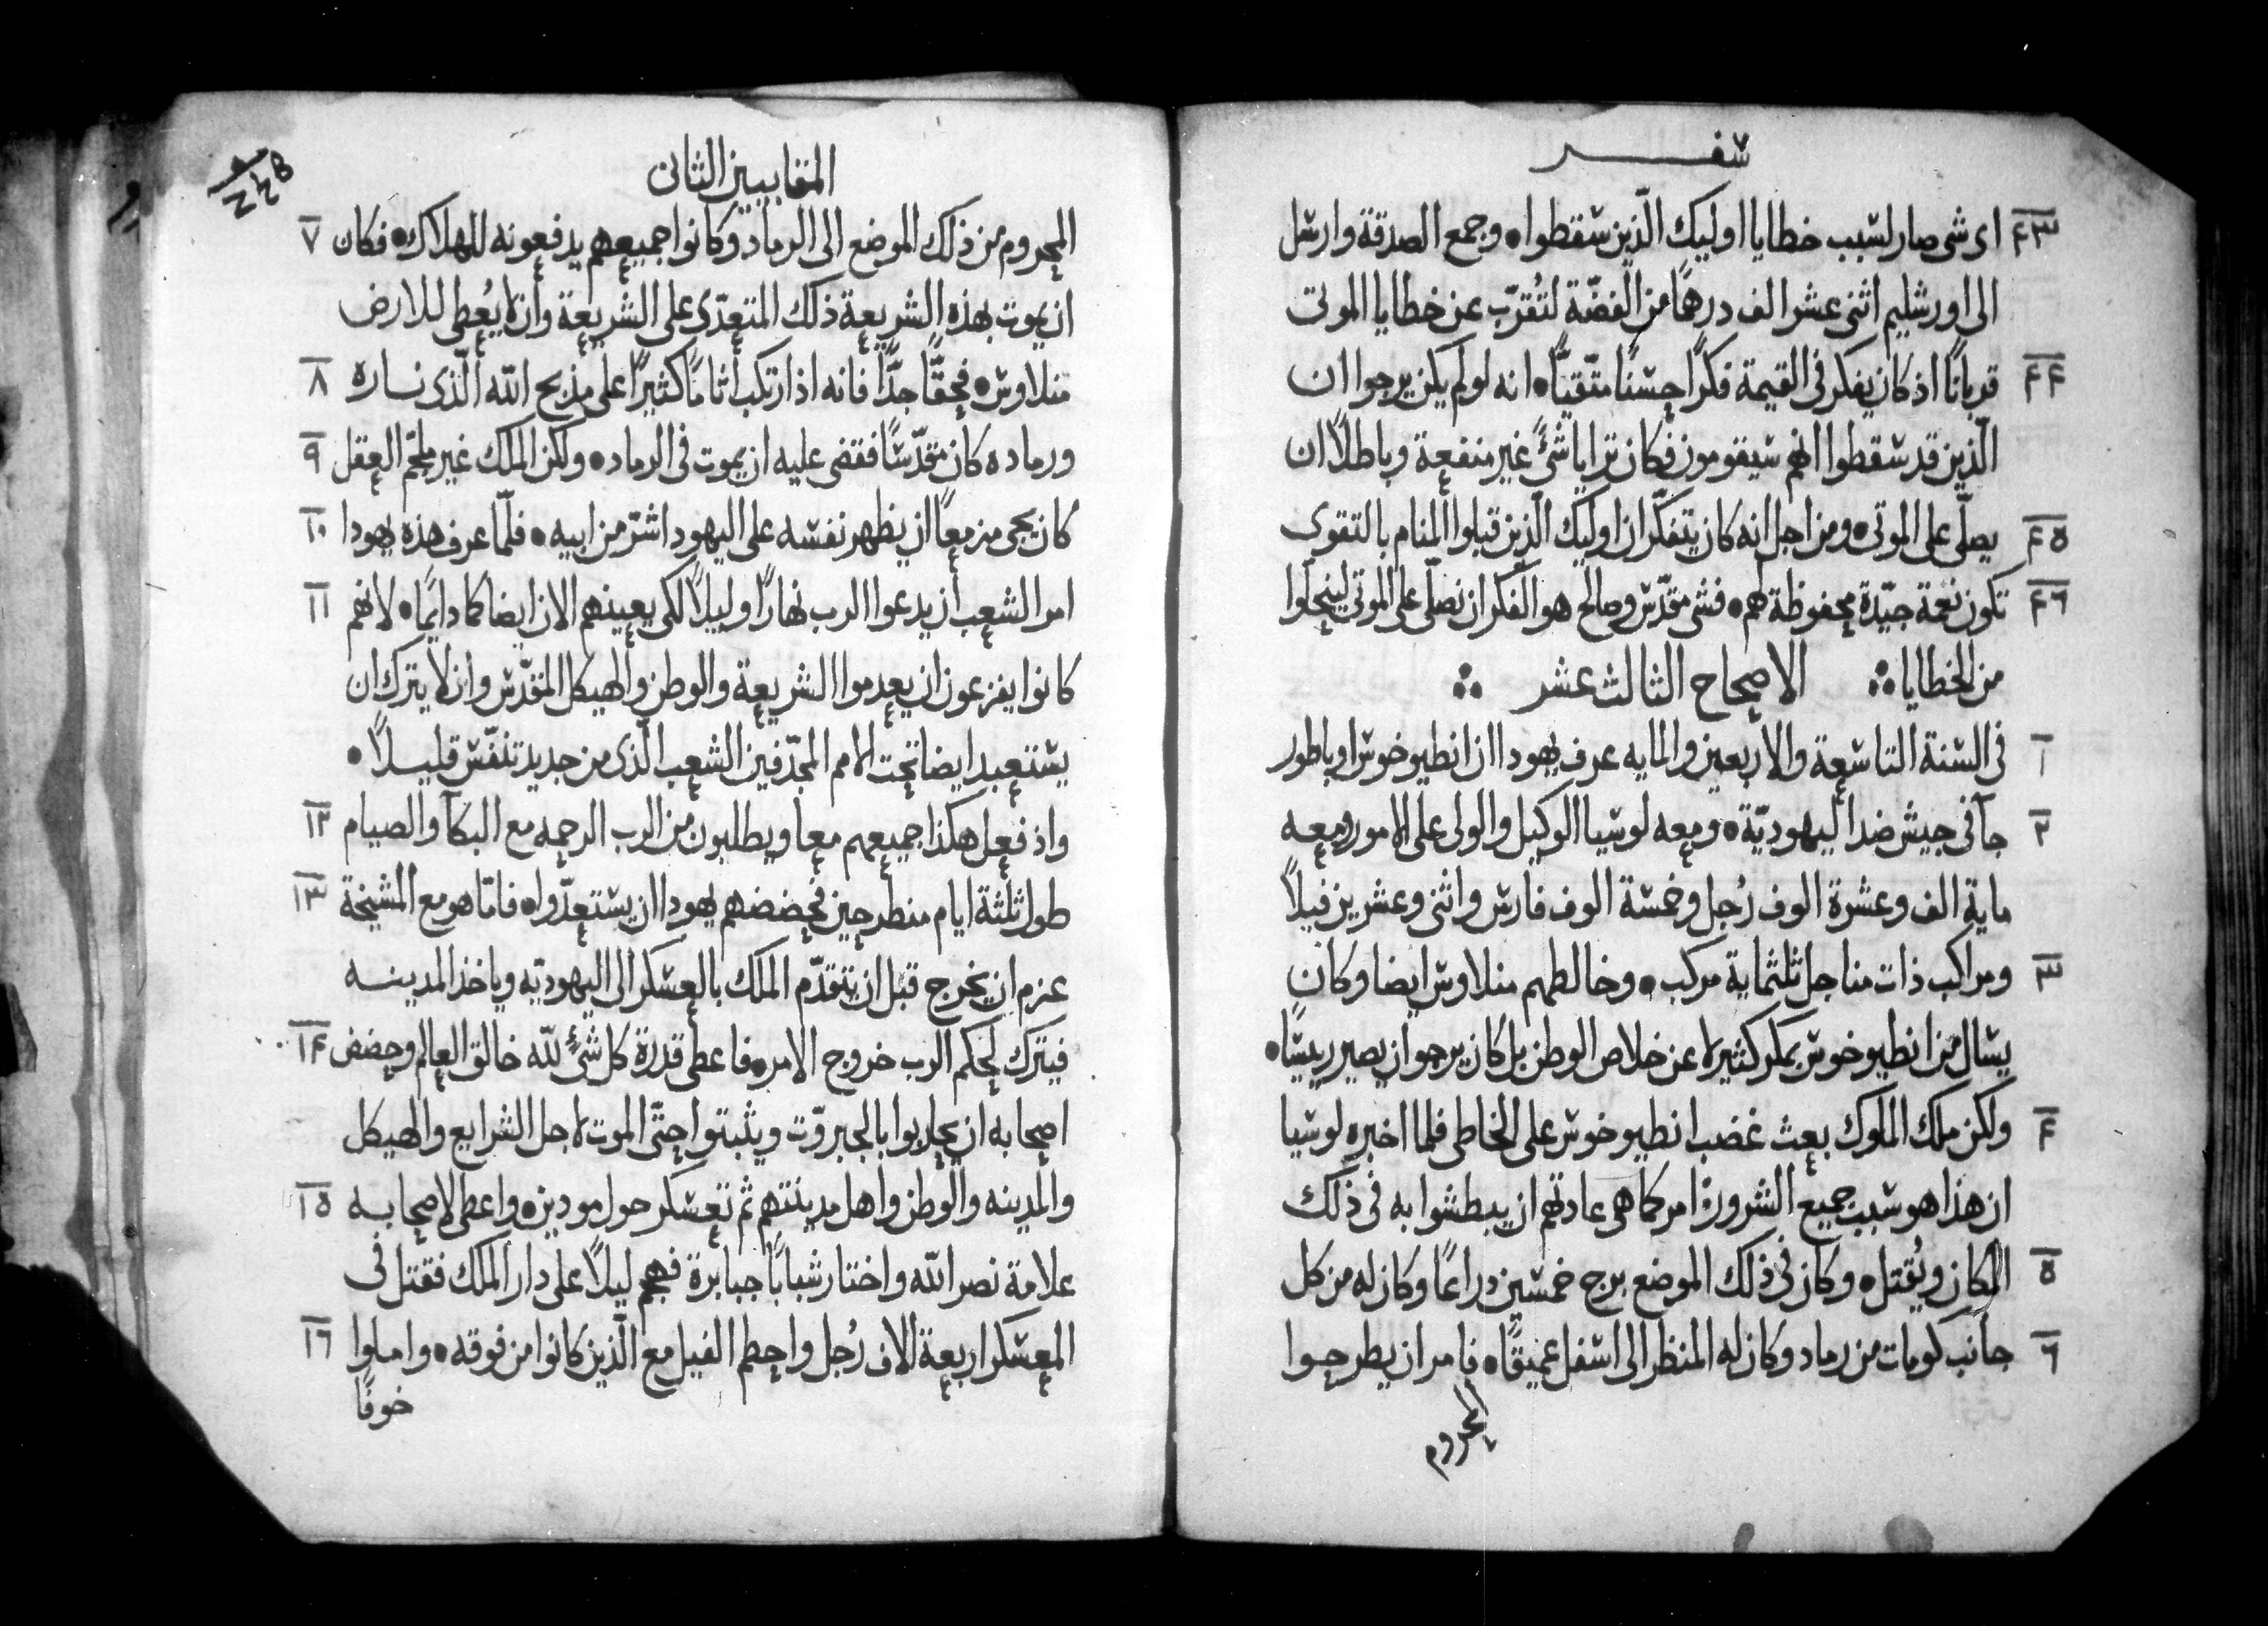 سفر
٤٣ اى شى صار لسبب خطايا اوليك الّذين سقطوا • وجمع الصدقة وارسل
الى اورشليم اثنى عشر الف درهمًا من الفضّة لتُقرّب عن خطايا الموتى
٤٤ قربانًا اذ كان يفكر فى القيمة فكرًا حسنًا متّقنيًّا • انه لو لم يكن يرجوا ان
الّذين قد سقطوا انهم سيقومون فكان ترايا شىً غير منفعة وباطلاً ان
٤٥ يصلّى على الموتى • ومن اجل انه كان يتفكّر ان اوليك الّذين قبلوا المنام بالتقوى
٤٦ تكون نعمة جيّدة محفوظة لهم • فشى مقدّس وصالح هو الفكر ان نصلّى على الموتى لينحلّوا
من الخطايا ∴ الاصحاح الثالث عشر ∴
١ فى السنة التاسعة والاربعين والمايه عرف يهودا ان انطيوخوس اوباطور
٢ جآ فى جيش ضد اليهوديّة • ومعه لوسيا الوكيل والولى على الامور ومعه
ماية الف وعشرة الوف رُجل وخمسة الوف فارس واثنى وعشرين فيلاً
٣ ومراكب ذات مناجل ثلثماية مركب • وخالطهم منلاوس ايضا وكان
يسال من انطيوخوس بمكر كثير لا عن خلاص الوطن بل كان يرجوا ان يصير رييسًا •
٤ ولكن ملك الملوك بعث غضب انطيوخوس على الخاطى فلما اخبره لوسيا
ان هذا هو سبب جميع الشرور امر كما هى عادتهم ان يبطشوا به فى ذلك
٥ المكان ويُقتل • وكان فى ذلك الموضع برج خمسين دراعًا وكان له من كل
٦ جانب كومات من رماد وكان له المنظر الى اسفل عميقًا • فامر ان يطرحوا
المحروم
المقابيين الثانى
٨٤٢
٧ المحروم من ذلك الموضع الى الرماد وكانوا جميعهم يدفعونه للهلاك • فكان
ان يموت بهذه الشريعة ذلك المتعدّى على الشريعة وان لا يُعطى للارض
٨ منلاوس • فحقًّا جدًّا فانه اذ ارتكب اثامًا كثيرًا على مذبح الله الّذى ناره
٩ ورماده كان مقدّسًا فقضى عليه ان يموت فى الرماد • ولكن الملك غير ملجّم العقل
١٠ كان يجى مزمعًا ان يظهر نفسه على اليهود اشرّ من ابيه • فلمّا عرف هذه يهودا
١١ امر الشعب ان يدعوا الرب نهارًا وليلاً لكى يعينهم الان ايضا كما دايمًا • لانهم
كانوا يفزعون ان يعدموا الشريعة والوطن والهيكل المقدّس وان لا يترك ان
يستعبد ايضا تحت الامم المجدّفين الشعب الّذى من جديد تنفّس قليلاً •
١٢ واذ فعل هكذا جميعهم معا ويطلبون من الرب الرحمه مع البكآ والصيام
١٣ طول ثلثة ايام منطرحين فحضضهم يهودا ان يستعدّوا • فامّا هو مع المشيخة
عزم ان يخرج قبل ان يتقدّم الملك بالعسكر الى اليهوديّه وياخذ المدينه
١٤ فيترك لحكم الرب خروج الامر • فاعطى قدرة كل شىٍ لله خالق العالم وحضض
اصحابه ان يحاربوا بالجبروّت ويثبتوا حتّى الموت لاجل الشرايع والهيكل
١٥ والمدينه والوطن واهل مدينتهم ثم تعسكر حول مودين • واعطى لاصحابه
علامة نصر الله واختار شبابًا جبابرة فهجم ليلاً على دار الملك فقتل فى
١٦ المعسكر اربعة الاف رُجل واحطم الفيل مع الّذين كانوا من فوقه • واملوا
خوفًا